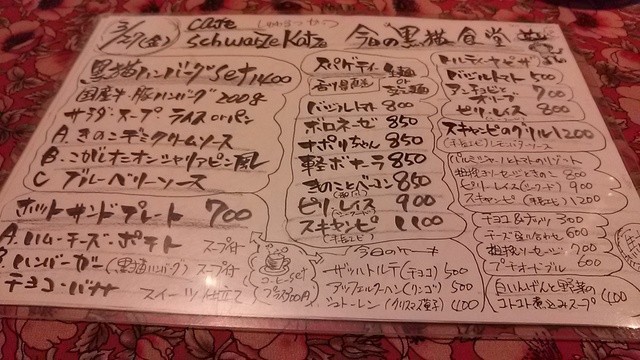 3/27(金) cafe
schwarze Katze
今日の黒猫食堂
黒猫ハンバーグset 1400
国産牛・豚ハンバーグ 200g
サラダ スープ ライス or パン
A. きのこデミクリームソース
B. こがしオニオンシャリアピン風
C ブルーベリーソース
ホットサンドプレート 700
A. ハム・チーズ・ポテト スープ付
B. ハンバーガー (黒猫ハンバーグ) スープ付
チョコ・バナナ スイーツ仕立て
コーヒーset
プラス200円
スパゲティ 生麺
or
バジルトマト 800
ボロネーゼ 850
ナポリちゃん 850
軽ボナーラ 850
きのことベーコン 850
ピリ・レイス 900
スキャンピ 1100
(手長エビ)
今日のケーキ
ザッハトルテ (チョコ) 500
アップフェルクーヘン (リンゴ) 500
シュトーレン (クリスマス菓子) 400
トルティーヤピザ
バジルトマト 500
アンチョビと
オリーブ 700
ピリ・レイス 800
スキャンピのグリル 1200
(手長エビ) レモンバターソース
パルミジャーノとトマトのリゾット
粗挽ソーセージときのこ 800
ピリーレイス (シーフード) 900
スキャンピ (手長エビ) 1200
チョコ&ナッツ 300
チーズ盛り合わせ 600
粗挽ソーセージ 700
プチオードブル 600
白いんげんと野菜の
コトコト煮込みスープ 400